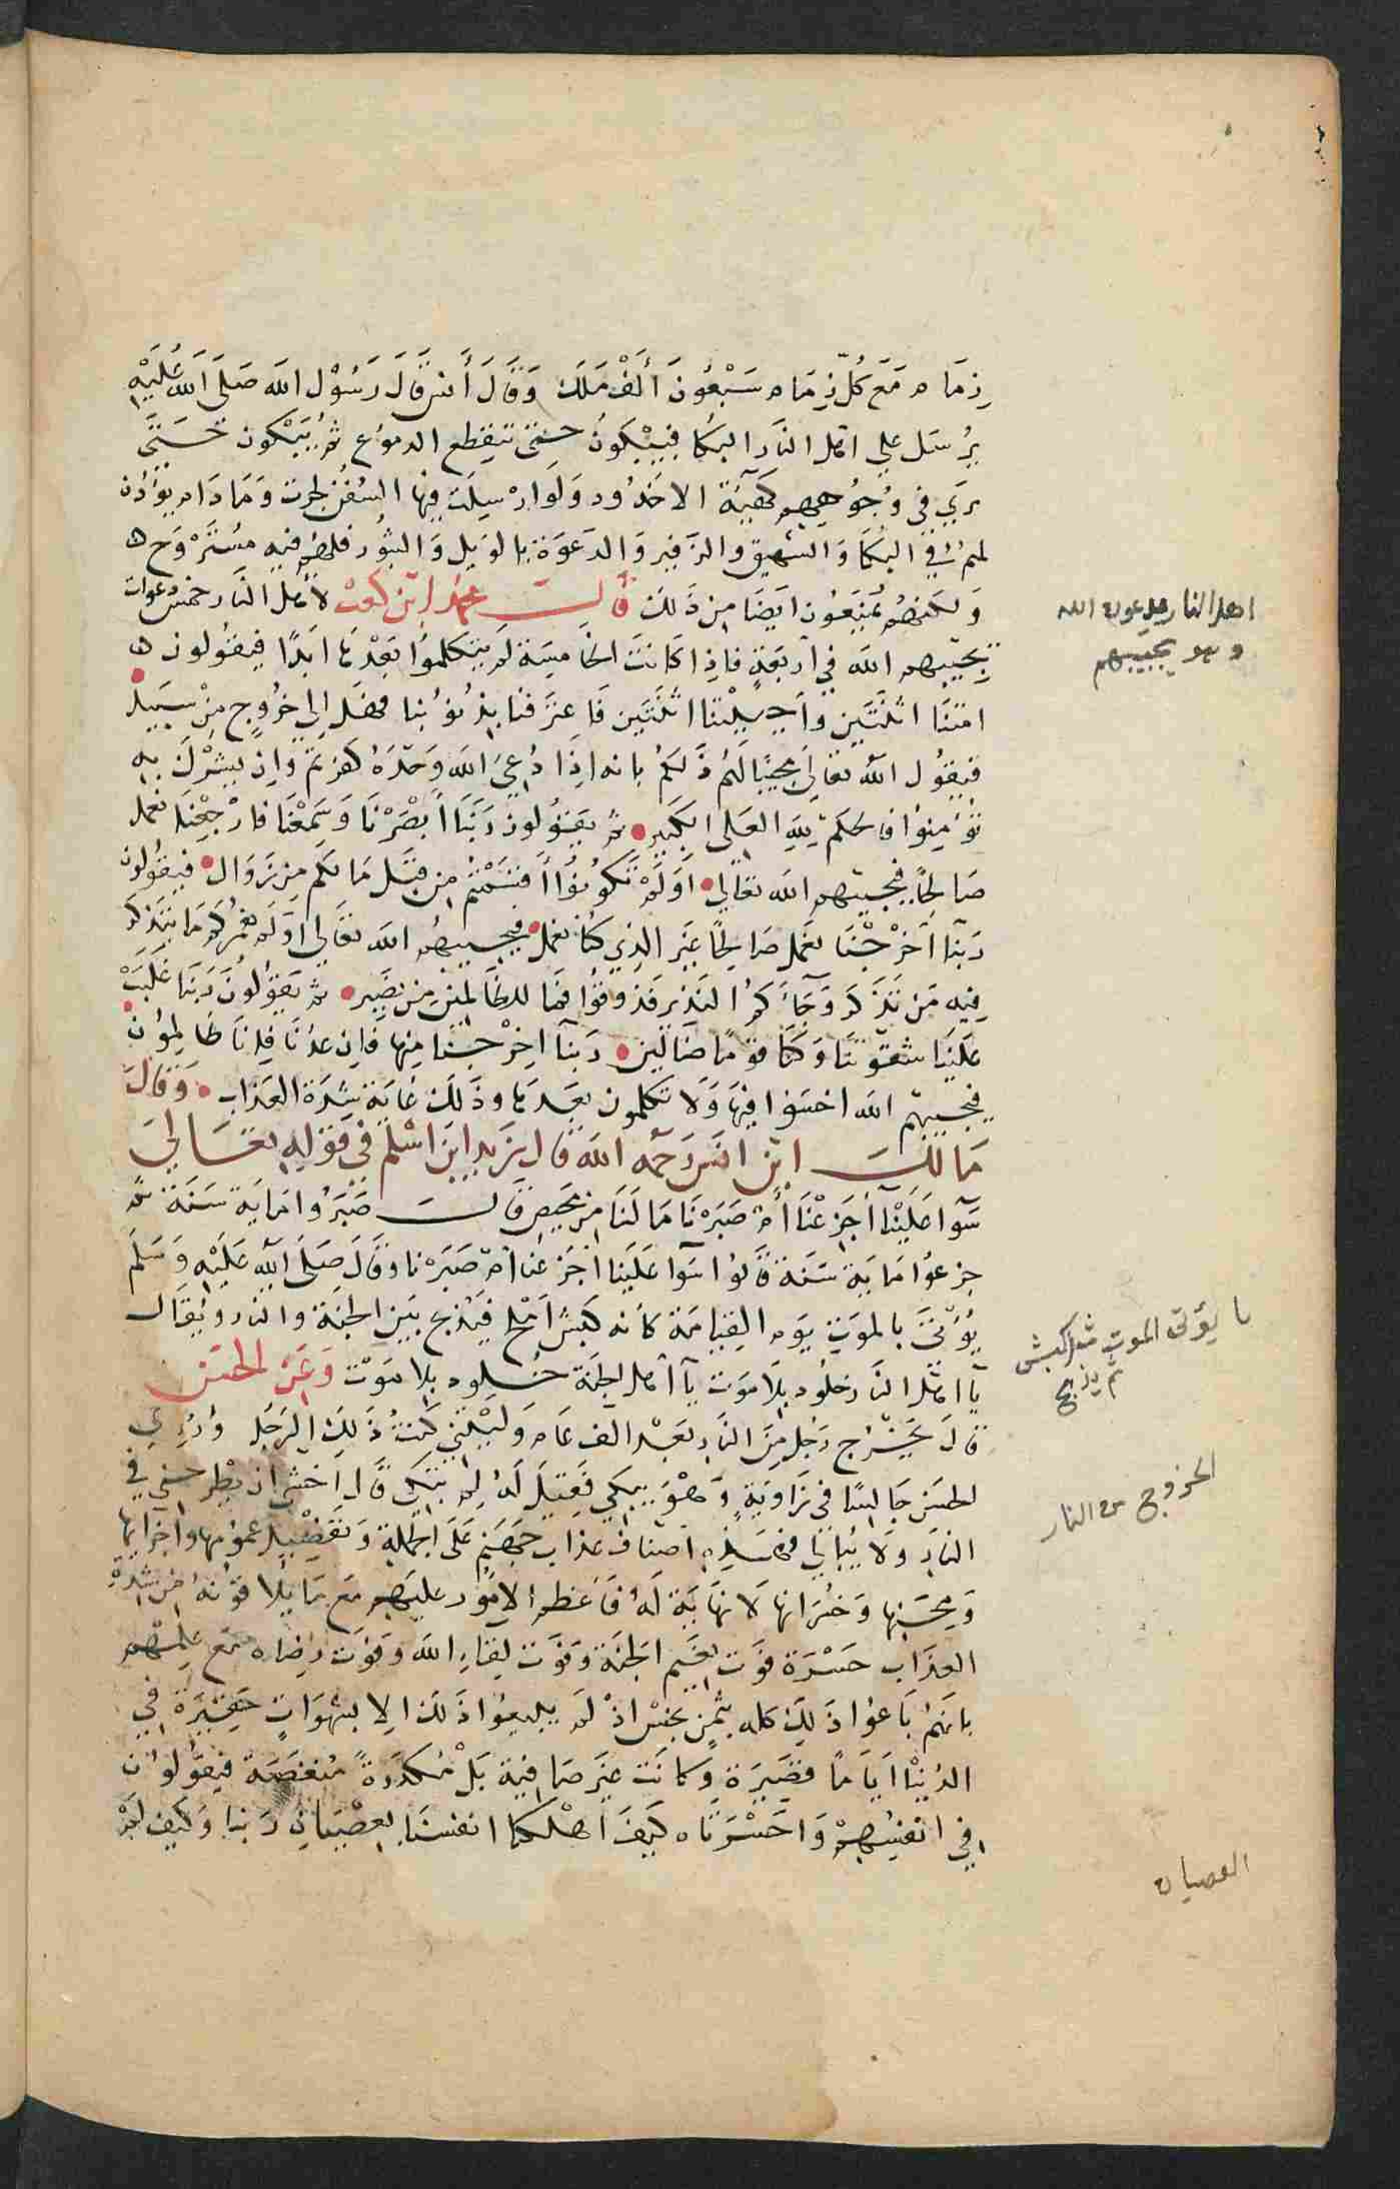 زمام مع كل زمام سبعون ألف ملك وقال أنس قال رسول الله صلى الله عليه
يرسل علي اهل النار البكا فيبكون حتى تنقطع الدموع ثم يبكون حتى
يري في وجوههم كهيئة الاخدود ولو ارسلت فيها السفن لجرت وما دام يؤذن
لهم في البكا والشهيق والزفير والدعوة بالويل والثبور فلهم فيه مستروح ه
ولكنهم يمنعون ايضا من ذلك قال محمد ابن كعب لأهل النار خمس دعوات
يجيبهم الله في أربعة فاذا كانت الخامسة لم يتكلموا بعدها ابدا فيقولون ه
امتنا اثنتين وأحييتنا اثنتين فاعترفنا بذنوبنا فهل الي خروج من سبيل
فيقول الله تعالى مجيبا لهم ذلكم بانه اذا دعي الله وحده كفرتم وان يشرك به
تؤمنوا فالحكم لله العلى الكبير ثم يقولون ربنا أبصرنا وسمعنا فارجعنا نعمل
صالحا فيجيبهم الله تعالي أولم تكونوا أقسمتم من قبل ما لكم من زوال فيقولون
ربنا أخرجنا نعمل صالحا غير الذي كنا نعمل فيجيبهم الله تعالي اولم نعمركم ما يتذكر
فيه من تذكر وجاءكم النذير فذوقوا فما للظالمين من نصير ثم يقولون ربنا غلبت
علينا شقوتنا وكنا قوما ضالين ربنا اخرجنا منها فان عدنا فإنا ظالمون
فيجيبهم الله اخسؤا فيها ولا تكلمون بعدها وذلك غاية شدة العذاب وقال
مالك ابن انس رحمه الله قال زيد ابن اسلم في قوله تعالى
سوآ علينآ أجزعنا أم صبرنا ما لنا من محيص قال صبروا ماية سنة ثم
جزعوا ماية سنة قالوا سوآ علينا اجزعنا أم صبرنا وقال صلى الله عليه وسلم
يؤتى بالموت يوم القيامة كأنه كبش أملح فيذبح بين الجنة والنار ويقال
يآ اهل النار خلود بلا موت يآ أهل الجنة خلود بلا موت وعن الحسن
قال يخرج رجل من النار بعد الف عام وليتني كنت ذلك الرجل ورئي
الحسن جالسا في زاوية وهو يبكي فقيل له لم تبكي قال اخشي أن يطرحني في
النار ولا يبالي فهذه أصناف عذاب جهنم على الجملة وتفصيل غمومها وأحزانها
ومحنها وحسراتها لا نهاية له فأعظم الامور عليهم مع ما يلاقونه من شدة
العذاب حسرة فوت نعيم الجنة وفوت لقاء الله وفوت رضاه مع علمهم
بانهم باعوا ذلك كله بثمن بخس اذ لم يبيعوا ذلك الا بشهوات حقيرة في
الدنيا أياما قصيرة وكانت غير صافية بل مكدرة منغصة فيقولون
في انفسهم واحسرتاه كيف أهلكنا انفسنا بعصيان ربنا وكيف لم
اهل النار يدعون الله
وهو يجيبهم
يا يؤتى الموت مثل كبش
ثم يذبح
الخروج من النار
العصيان